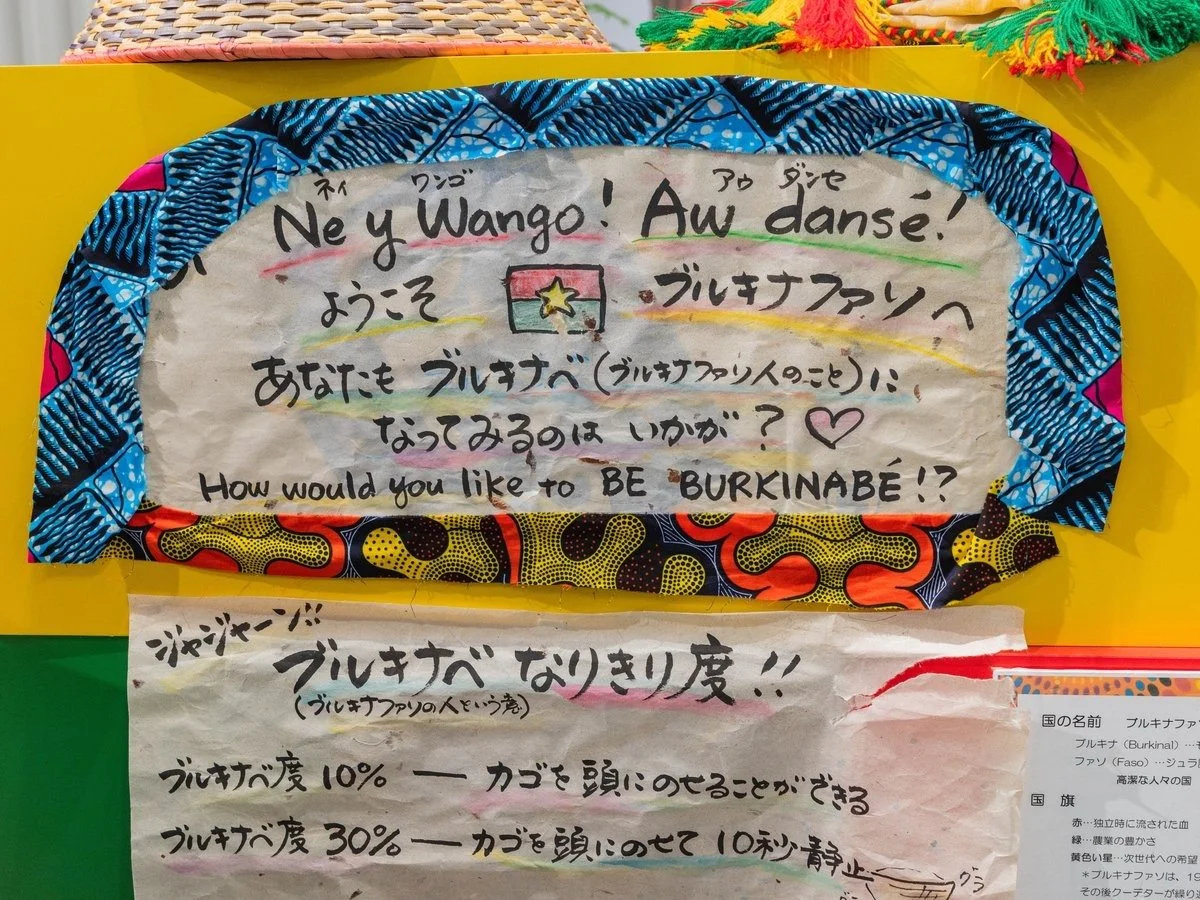 ネイ ワンゴ アゥ ダンセ
Ne y Wango! Aw dansé!
ようこそ ブルキナファソへ
あなたも ブルキナベ(ブルキナファソ人のこと)に
なってみるのは いかが?
How would you like to BE BURKINABÉ!?
ジャジャーン!!
ブルキナベ なりきり度!!
(ブルキナファソの人という意)
ブルキナベ度 10% ― カゴを頭にのせることができる
ブルキナベ度 30% ― カゴを頭にのせて 10秒静止
グラ
国の名前 ブルキナファ
ブルキナ(Burkina)…
ファソ(Faso)…ジュラ
高潔な人々の国
国 旗
赤…独立時に流された血
緑…農業の豊かさ
黄色い星…次世代への希望
*ブルキナファソは、19
その後クーデターが繰り